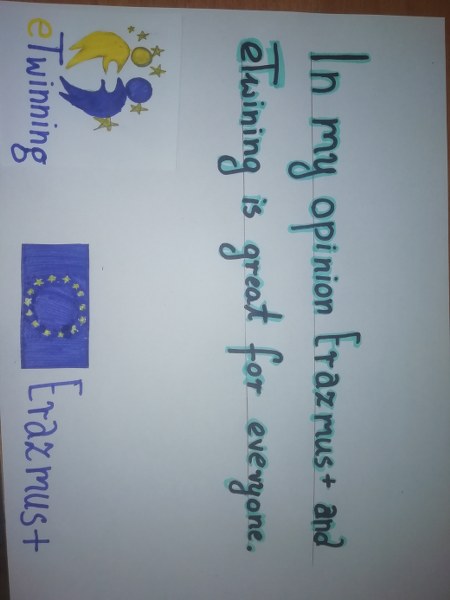 In my opinion Erazmus+ and
eTwining is great for everyone.
eTwinning
Erazmus+